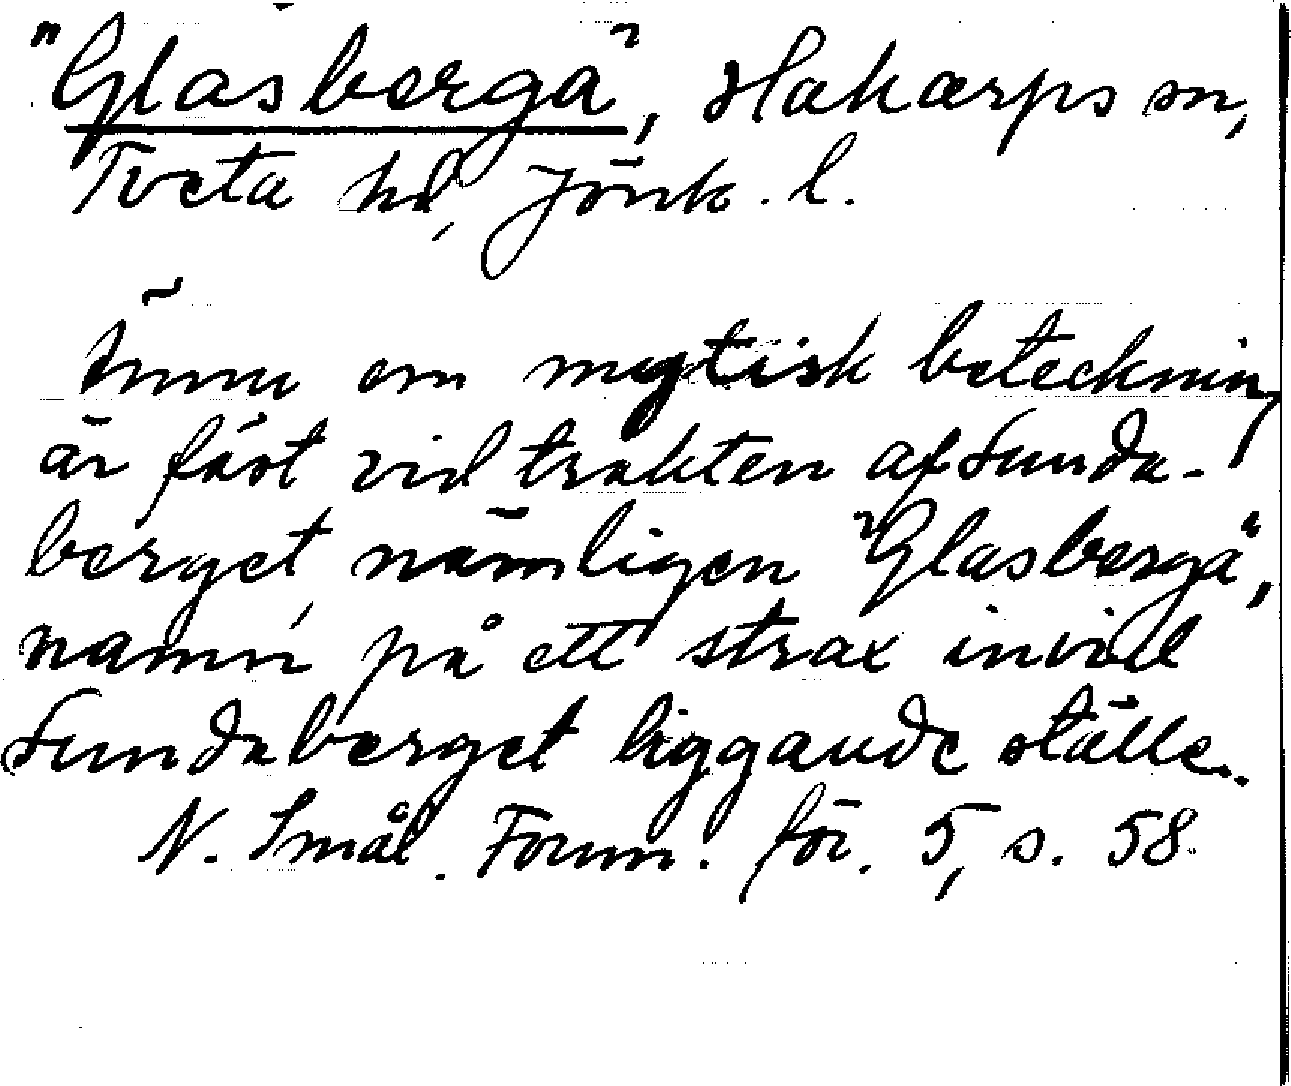 "Glasberga", Hakarps sn,
Tveta hd, Jönk. l.
Ännu en mytisk beteckning
är fäst vid trakten af Sunda-
berget, nämligen "Glasberga",
namn på ett strax invid
Sundaberget liggande ställe.
N. Smål. Fornm. för. 5, s. 58.